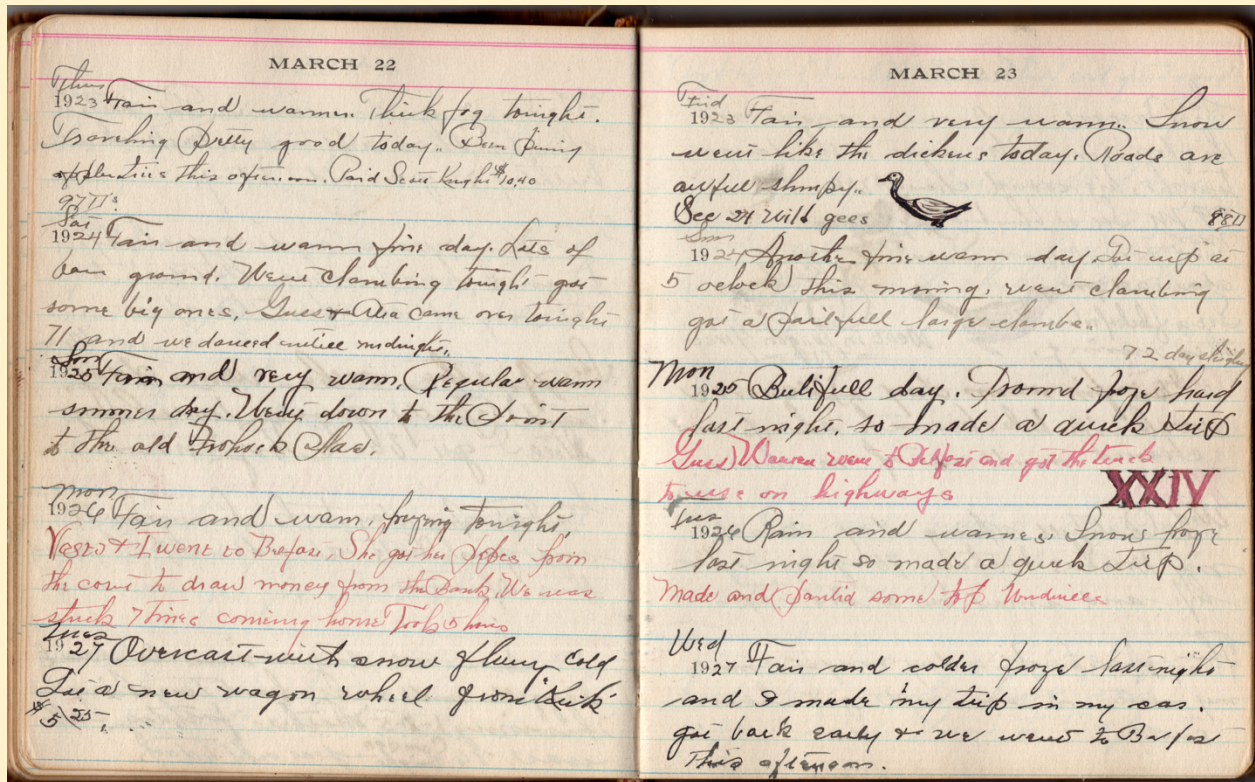 MARCH 22
Thurs
1923 Fair and warmer. Thick fog tonight.
Traveling pretty good today. Ben
this afternoon. Paid Scott Knight $10.40
97
Sat
1924 Fair and warm fine day. Lots of
bare ground. Went clambing tonight got
some big ones. Guss & came over tonight
71 and we danced untill midnight.
Sun
1925 Fair and very warm. Regular warm
summer day. Went down to the Point
to the old Frohock Plac.
Mon
1926 Fair and warm, frezing tonight.
Vesta & I went to Belfast. She got her papes from
the court to draw money from the Bank. We was
stuck 7 times coming home Took 5 hours
Tues
1927 Overcast with snow flury cold
Got a new wagon wheel from Kirk
$5.25.
MARCH 23
Frid
1923 Fair and very warm. Snow
went like the dickens today. Roads are
awfull slumpy.
See 24 Wild gees 98
Sun
1924 Another fine warm day Got up at
5 oclock this morning. went clambing
got a pailfull large clambs.
72 day
Mon
1925 Butifull day. Ground froze hard
last night, so made a quick trip
Guss Warren went to Belfast and got the truck
to use on highways
XXIV
Tues
1926 Rain and warmer Snow froze
last night so made a quick trip.
Made and painted some top
Wed
1927 Fair and colder froze last night
and I made my trip in my car.
got back early & we went to Belfast
this afternoon.